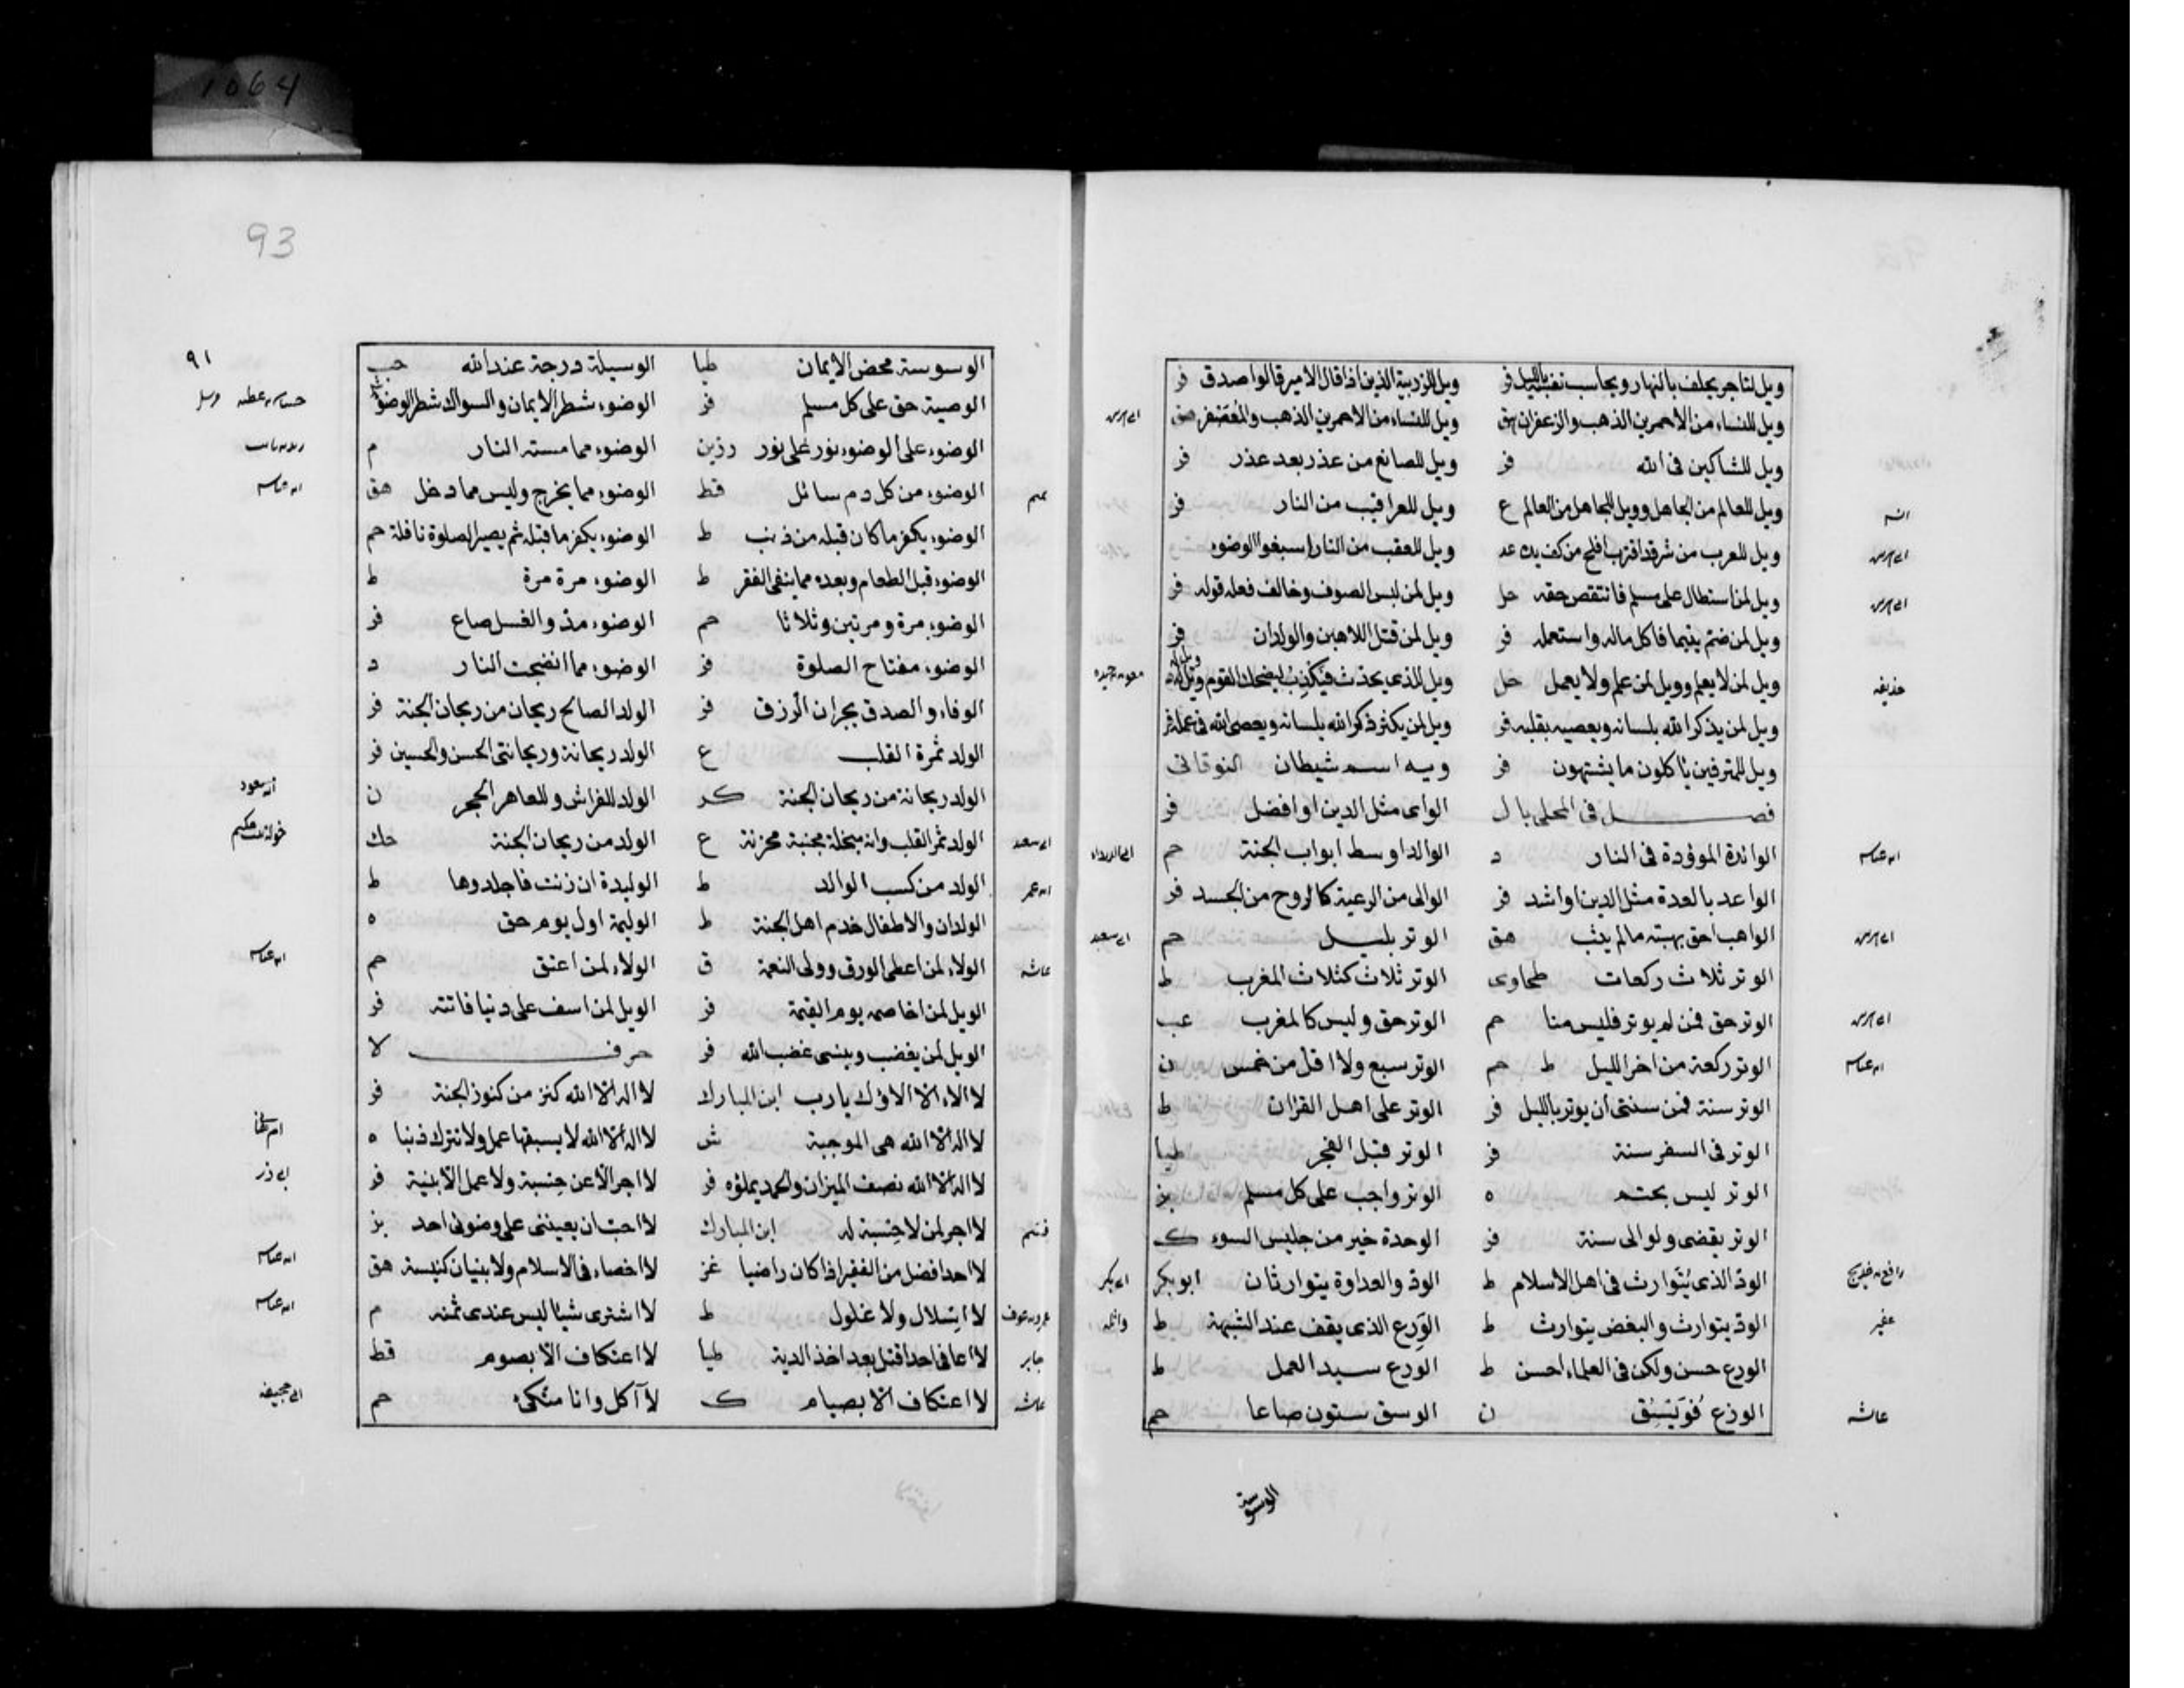 1064
ويل لتاجر يحلف بالنهار ويحاسب نفسه بالليل فر ويل للزربية الذين اذا قال الامير قالوا صدق فر
ويل للنساء من الاحمرين الذهب والزعفران هق ويل للنساء من الاحمرين الذهب والمعصفر هق
ويل للشاكين فى الله فر ويل للصانع من غد وبعد غد فر
ويل للعالم من الجاهل وويل للجاهل من العالم ع ويل للعراقيب من النار فر
ويل للعرب من شر قد اقترب افلح من كف يده عد ويل للعقب من النار اسبغوا الوضوء
ويل لمن استطال على مسلم فانتقص حقه حل ويل لمن لبس الصوف وخالف فعله قوله فر
ويل لمن ضم يتيما فاكل ماله واستعمله فر ويل لمن قتل اللاهين والولدان فر
ويل لمن لا يعلم وويل لمن علم ولا يعمل حل ويل للذى يحدث فيكذب ليضحك القوم ويل له
ويل لمن يذكر الله بلسانه ويعصيه بقلبه فر ويل لمن يكثر ذكر الله بلسانه ويعصى الله فى عمله فر
ويل للمترفين ياكلون ما يشتهون فر ويه اسم شيطان النوقانى
فصل فى المحلى بال الواى مثل الدين او افضل فر
الوائدة الموؤدة فى النار د الوالد اوسط ابواب الجنة حم
الواعد بالعدة مثل الدين او اشد فر الوالى من الرعية كالروح من الجسد فر
الواهب احق بهبته ما لم يثب هق الوتر بليل حم
الوتر ثلاث ركعات طحاوى الوتر ثلاث كثلاث المغرب ط
الوتر حق فمن لم يوتر فليس منا حم الوتر حق وليس كالمغرب عب
الوتر ركعة من اخر الليل ط حم الوتر سبع ولا اقل من خمس ن
الوتر سنة فمن سنتى ان يوتر بالليل فر الوتر على اهل القران ط
الوتر فى السفر سنة فر الوتر قبل الفجر طيا
الوتر ليس بحتم ه الوتر واجب على كل مسلم بز
الوتر يقضى ولو الى سنة فر الوحدة خير من جليس السوء ك
الود الذى يتوارث فى اهل الاسلام ط الود والعداوة يتوارثان ابو بكر
الود يتوارث والبغض يتوارث ط الورع الذى يقف عند الشبهة ط
الورع حسن ولكن فى العلماء احسن ط الورع سيد العمل ط
الوزغ فويسق ن الوسق ستون صاعا حم
الوسوسة
انس
حذيفه
رافع بن خديج
عفير
عائشه
واثله
93
٩١
الوسوسة محض الايمان طيا الوسيلة درجة عند الله حب
الوصية حق على كل مسلم فر الوضوء شطر الايمان والسواك شطر الوضوء
الوضوء على الوضوء نور على نور رزين الوضوء مما مسته النار م
الوضوء من كل دم سائل قط الوضوء مما يخرج وليس مما دخل هق
الوضوء يكفر ما كان قبله من ذنب ط الوضوء يكفر ما قبله ثم يصير الصلوة نافلة حم
الوضوء قبل الطعام وبعده مما ينفى الفقر ط الوضوء مرة مرة ط
الوضوء مرة ومرتين وثلاثا حم الوضوء مد والغسل صاع فر
الوضوء مفتاح الصلوة فر الوضوء مما انضجت النار د
الوفاء والصدق يجران الرزق فر الولد الصالح ريحان من ريحان الجنة فر
الولد ثمرة القلب ع الولد ريحانة وريحانتى الحسن والحسين فر
الولد ريحانة من ريحان الجنة كر الولد للفراش وللعاهر الحجر ن
الولد ثمر القلب وانه مبخلة مجبنة محزنة ع الولد من ريحان الجنة حك
الولد من كسب الوالد ط الوليدة ان زنت فاجلدوها ط
الولدان والاطفال خدم اهل الجنة ط الوليمة اول يوم حق ه
الولاء لمن اعطى الورق وولى النعمة ق الولاء لمن اعتق حم
الويل لمن اخاصمه يوم القيمة فر الويل لمن اسف على دنيا فاتته فر
الويل لمن يغضب وينسى غضب الله فر حرف لا
لا الاء الا الاؤك يا رب ابن المبارك لا اله الا الله كنز من كنوز الجنة فر
لا اله الا الله هى الموجبة ش لا اله الا الله لا يسبقها عمل ولا تترك ذنبا ه
لا اله الا الله نصف الميزان والحمد يملؤه فر لا اجر الا عن حسبة ولا عمل الا بنية فر
لا اجر لمن لا حسبة له ابن المبارك لا احب ان يعيننى على وضوئى احد بز
لا احد افضل من الفقير اذا كان راضيا لا اخصاء فى الاسلام ولا بنيان كنيسة هق
لا اسلال ولا غلول ط لا اشترى شيئا ليس عندى ثمنه م
لا اعافى احدا قتل بعد اخذ الدية طيا لا اعتكاف الا بصوم قط
لا اعتكاف الا بصيام ك لا آكل وانا متكئ حم
تميم
ابى سعد
ابن عمر
عائشه
جابر
عائشه
ابن عباس
خوله بنت حكيم
ابن عباس
ابى ذر
ابن عباس
ابن عباس
ابى جحيفه